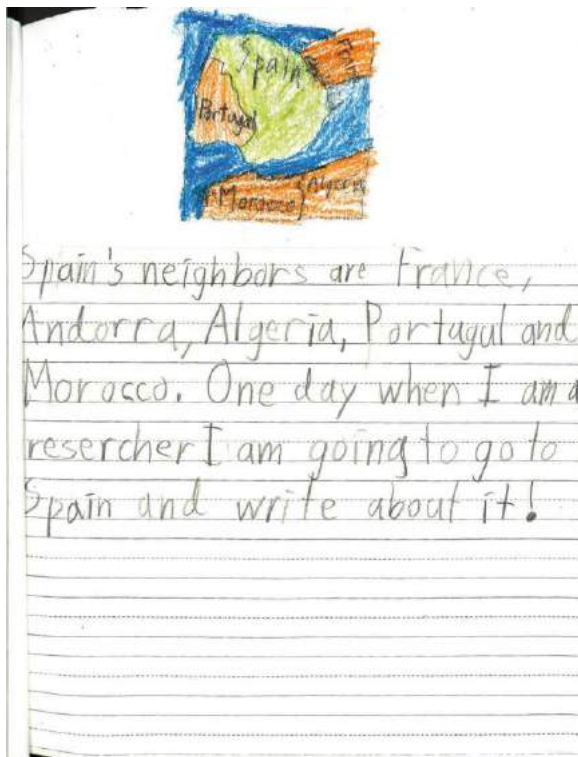 Spain
Portugal
Morocco
Algeria
Spain's neighbors are France,
Andorra, Algeria, Portugul and
Morocco. One day when I am a
resercher I am going to go to
Spain and write about it!